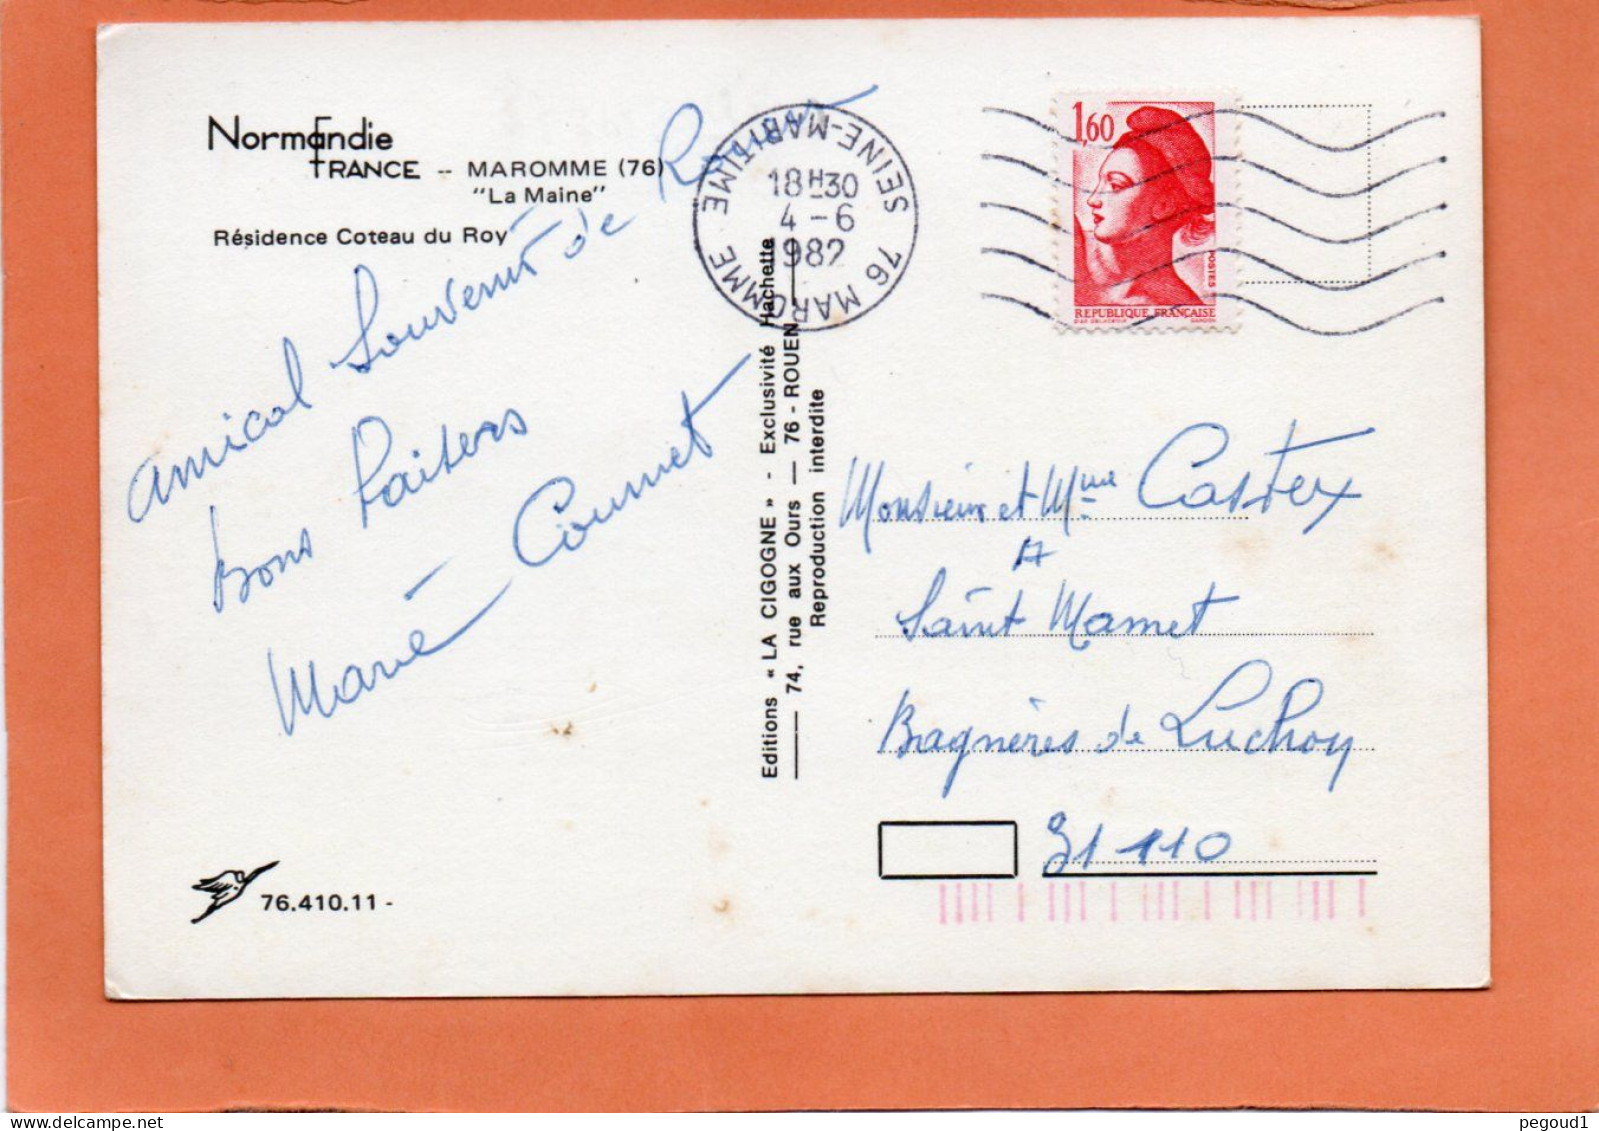 Normandie
FRANCE -- MAROMME (76)
"La Maine"
Résidence Coteau du Roy
amical Souvenir de
bons baisers
Marie
76.410.11 -
Editions « LA CIGOGNE » - Exclusivité Hachette
74, rue aux Ours — 76 - ROUEN
Reproduction interdite
76 MAROMME SEINE-MARITIME
18H30
4 - 6
1982
1,60
POSTES
REPUBLIQUE FRANÇAISE
Monsieur et Mme Castex
A
Saint Mamet
Bagnères de Luchon
31110
pegoud1